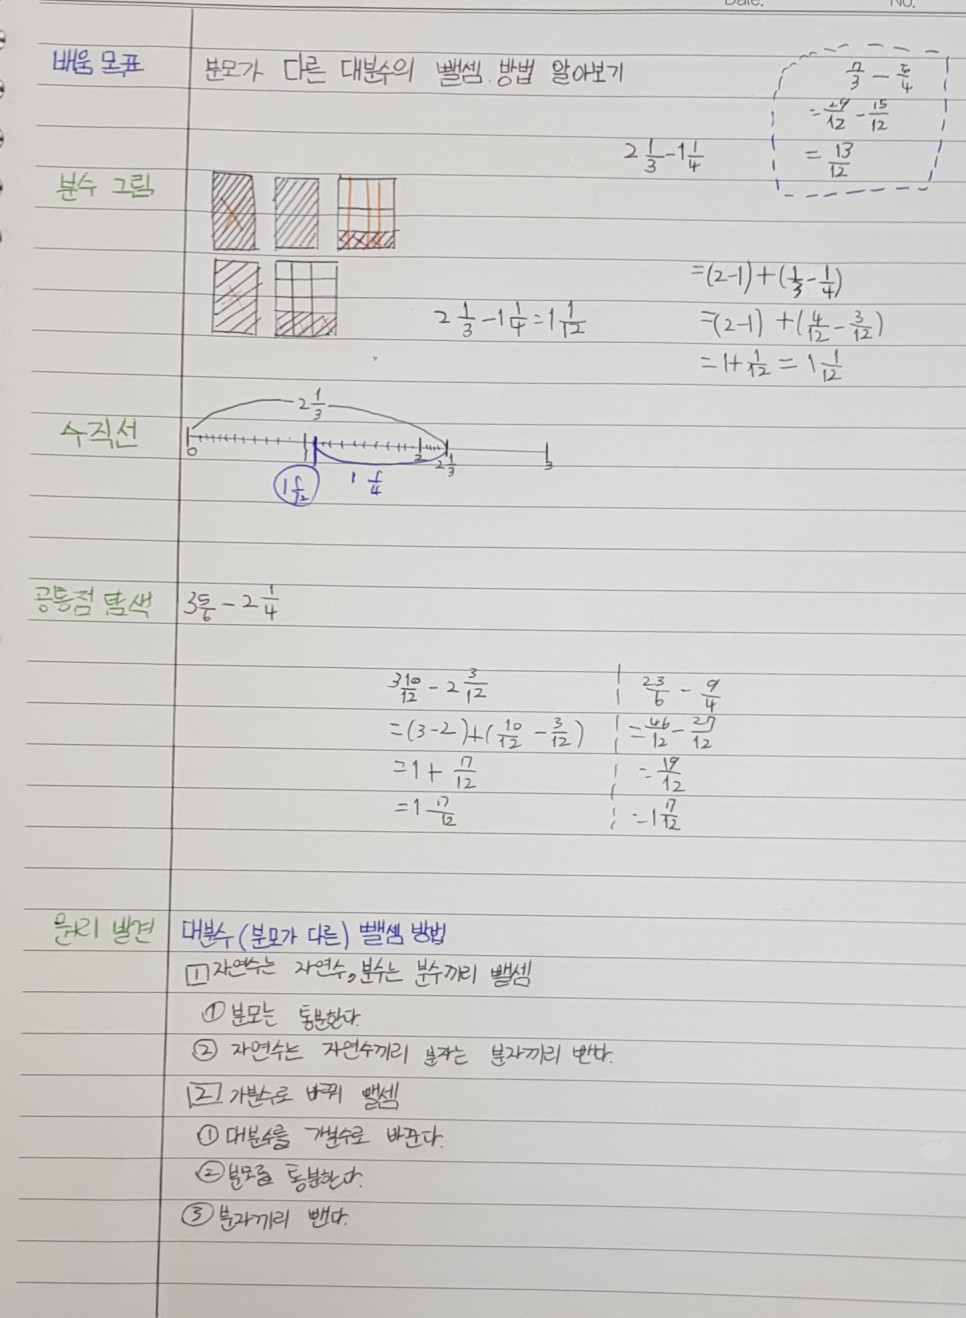 Date. No.
배움 목표 분모가 다른 대분수의 뺄셈 방법 알아보기
7/3 - 5/4
= 28/12 - 15/12
= 13/12
2 1/3 - 1 1/4
분수 그림
= (2-1) + (1/3 - 1/4)
2 1/3 - 1 1/4 = 1 1/12
= (2-1) + (4/12 - 3/12)
= 1 + 1/12 = 1 1/12
수직선
2 1/3
0 1 2 2 1/3 3
1 1/12 1 1/4
공통점 탐색 3 5/6 - 2 1/4
3 10/12 - 2 3/12 23/6 - 9/4
= (3-2) + (10/12 - 3/12) = 46/12 - 27/12
= 1 + 7/12 = 19/12
= 1 7/12 = 1 7/12
원리 발견 대분수 (분모가 다른) 뺄셈 방법
1 자연수는 자연수, 분수는 분수끼리 뺄셈
① 분모는 통분한다.
② 자연수는 자연수끼리 분자는 분자끼리 뺀다.
2 가분수로 바꿔 뺄셈
① 대분수를 가분수로 바꾼다.
② 분모를 통분한다.
③ 분자끼리 뺀다.